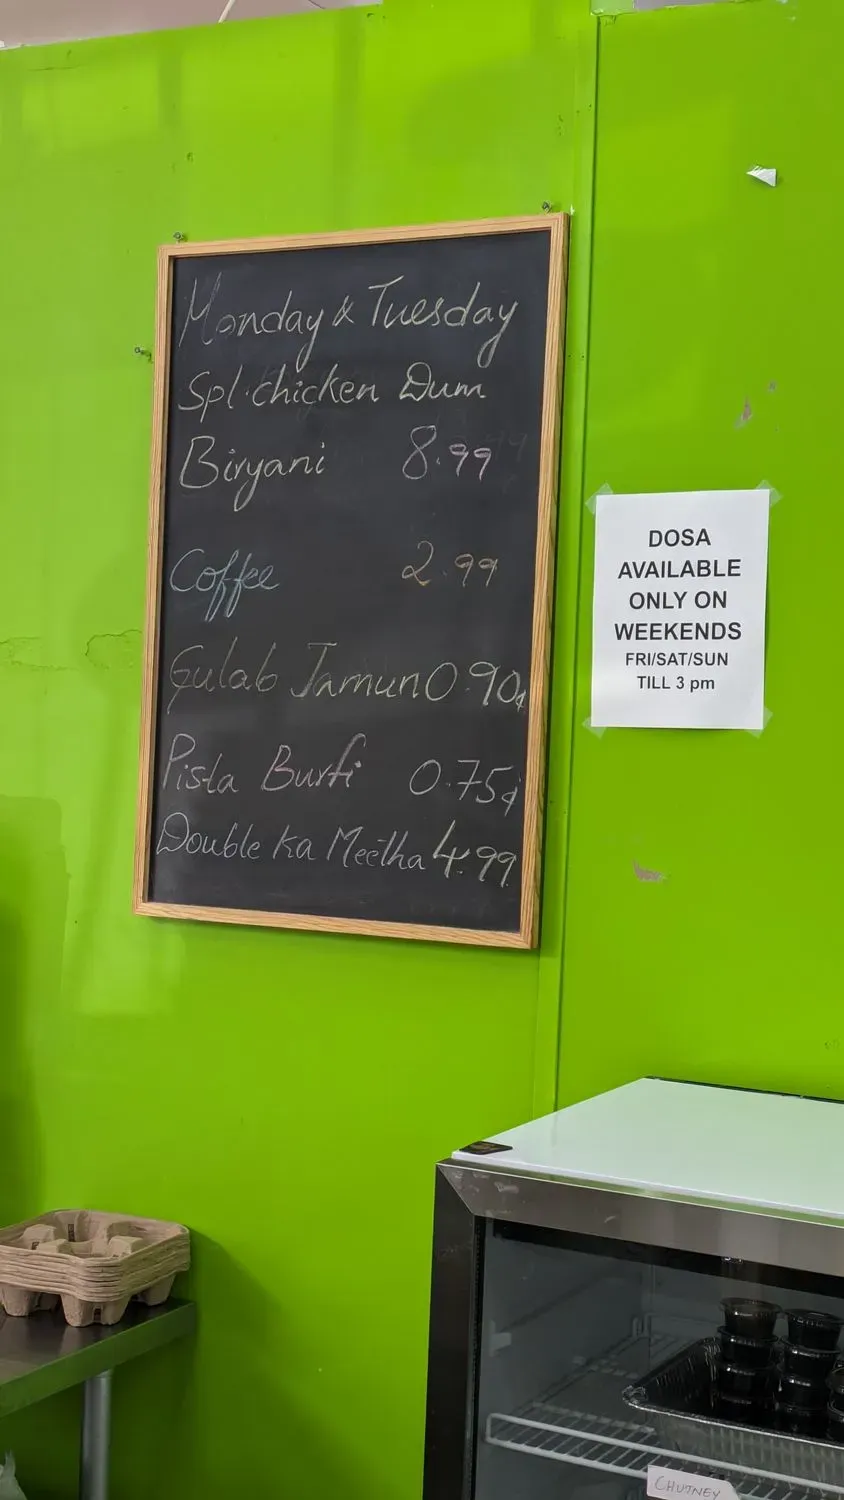 Monday & Tuesday
Spl. chicken Dum
Biryani 8.99
Coffee 2.99
Gulab Jamun 0.90¢
Pista Burfi 0.75¢
Double ka Meetha 4.99
DOSA
AVAILABLE
ONLY ON
WEEKENDS
FRI/SAT/SUN
TILL 3 pm
CHUTNEY